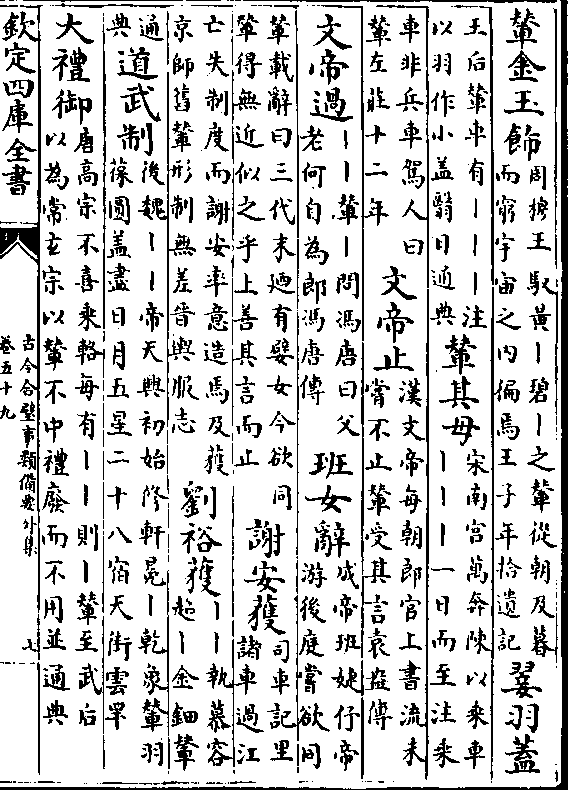 輦金玉飾
周穆王馭黃丨碧丨之輦從朝及暮
而窮宇宙之内徧焉王子年拾遺記
翣羽蓋
王后輦車有丨丨丨注
以羽作小盖翳日通典
輦其母
宋南宫萬奔陳以乘車
丨丨丨一日而至注乘
車非兵車駕人曰
輦左莊十二年
文帝止
漢文帝每朝郎官上書流未
嘗不止輦受其言袁盎傳
文帝過
丨丨輦丨問馮唐曰父
老何自為郎馮唐傳
班女辭
成帝班婕仔帝
游後庭嘗欲同
輦載辭曰三代末廼有嬖女今欲同
輦得無近似之乎上善其言而止
謝安獲
司車記里
諸車過江
亡失制度而謝安率意造焉及獲
京師舊輦形制無差晉輿服志
劉裕獲
丨丨執慕容
超丨金鈿輦
通
典
道武制
後魏丨丨帝天興初始修軒冕丨乾象輦羽
葆圓盖盡日月五星二十八宿天街雲罕
大禮御
唐高宗不喜乘輅每有丨丨則丨輦至武后
以為常玄宗以輦不中禮廢而不用並通典
欽定四庫全書
古今合璧事類備要外集
卷五十九
七